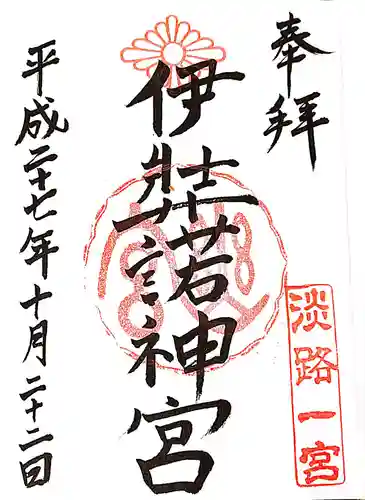 奉拝
伊弉諾神宮
平成二十七年十月二十二日
淡路一宮